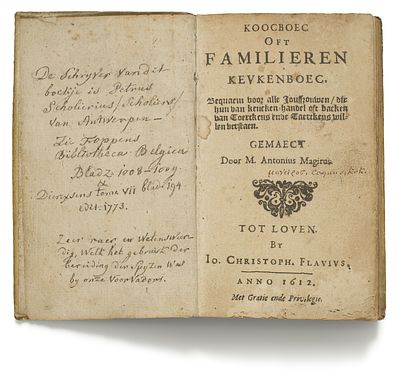 De Schryver van dit
boekje is Petrus
Scholierius/Scholiers/
van Antwerpen—
Zie Foppens
Bibliotheca Belgica
Bladz 1008-1009.
tome VII bladz 194
edit. 1773.
Zeer raer en wetensweer-
dig, Welk het gebruik der
bereiding der Spyzen Was
by onze Voorvaders.
KOOCBOEC
OFT
FAMILIEREN
KEVKENBOEC.
Bequaem voor alle Jouffrouwen / die
hun van keucken-handel oft backen
van Toertkens ende Taertkens wil-
len verstaen.
GEMAECT
Door M. Antonius Magirus.
TOT LOVEN.
BY
IO. CHRISTOPH. FLAVIUS,
ANNO 1612.
Met Gratie ende Privilegie.